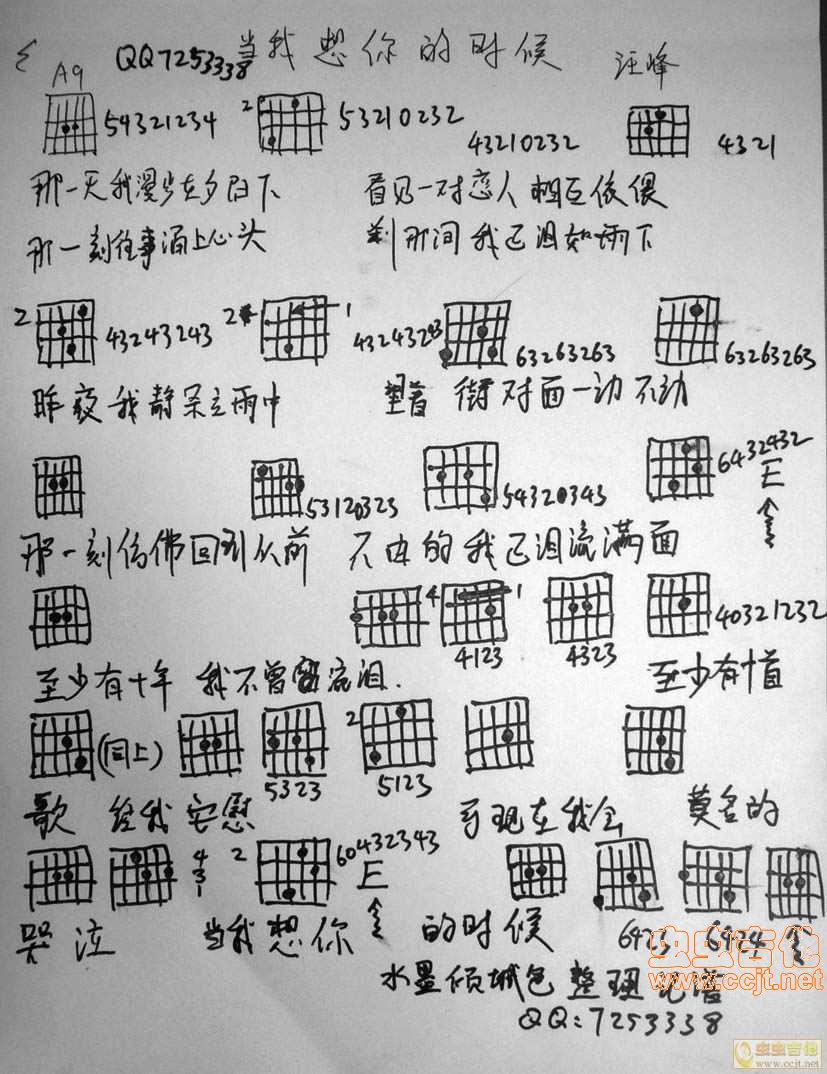 A9 QQ7253338 当我想你的时候 汪峰
54321234 2 53210232 43210232 4321
那一天我漫步在夕阳下 看见一对恋人相互依偎
那一刻往事涌上心头 刹那间我已泪如雨下
2 43243243 2 1 43243243 63263263 63263263
昨夜我静呆立雨中 望着街对面一动不动
53120323 54320343 6432432 E
那一刻仿佛回到从前 不由的我已泪流满面
4 1 4123 4323 40321232
至少有十年 我不曾流泪. 至少有十首
(同上) 5323 2 5123
歌 给我安慰 可现在我会 莫名的
4 3 1 2 60432343 E
哭泣 当我想你的时候 6423 6424
水墨倾城色 整理
QQ:7253338
虫虫吉他
www.ccjt.net
虫虫吉他
www.ccjt.net